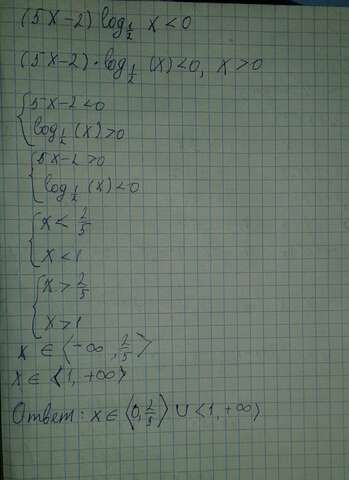 (5x-2) log_{1/2} x < 0
(5x-2)·log_{1/2} (x) < 0, x > 0
{ 5x-2 < 0
log_{1/2} (x) > 0
{ 5x-2 > 0
log_{1/2} (x) < 0
{ x < 2/5
x < 1
{ x > 2/5
x > 1
x ∈ ⟨-∞, 2/5⟩
x ∈ ⟨1, +∞⟩
Ответ: x ∈ ⟨0, 2/5⟩ ∪ ⟨1, +∞⟩